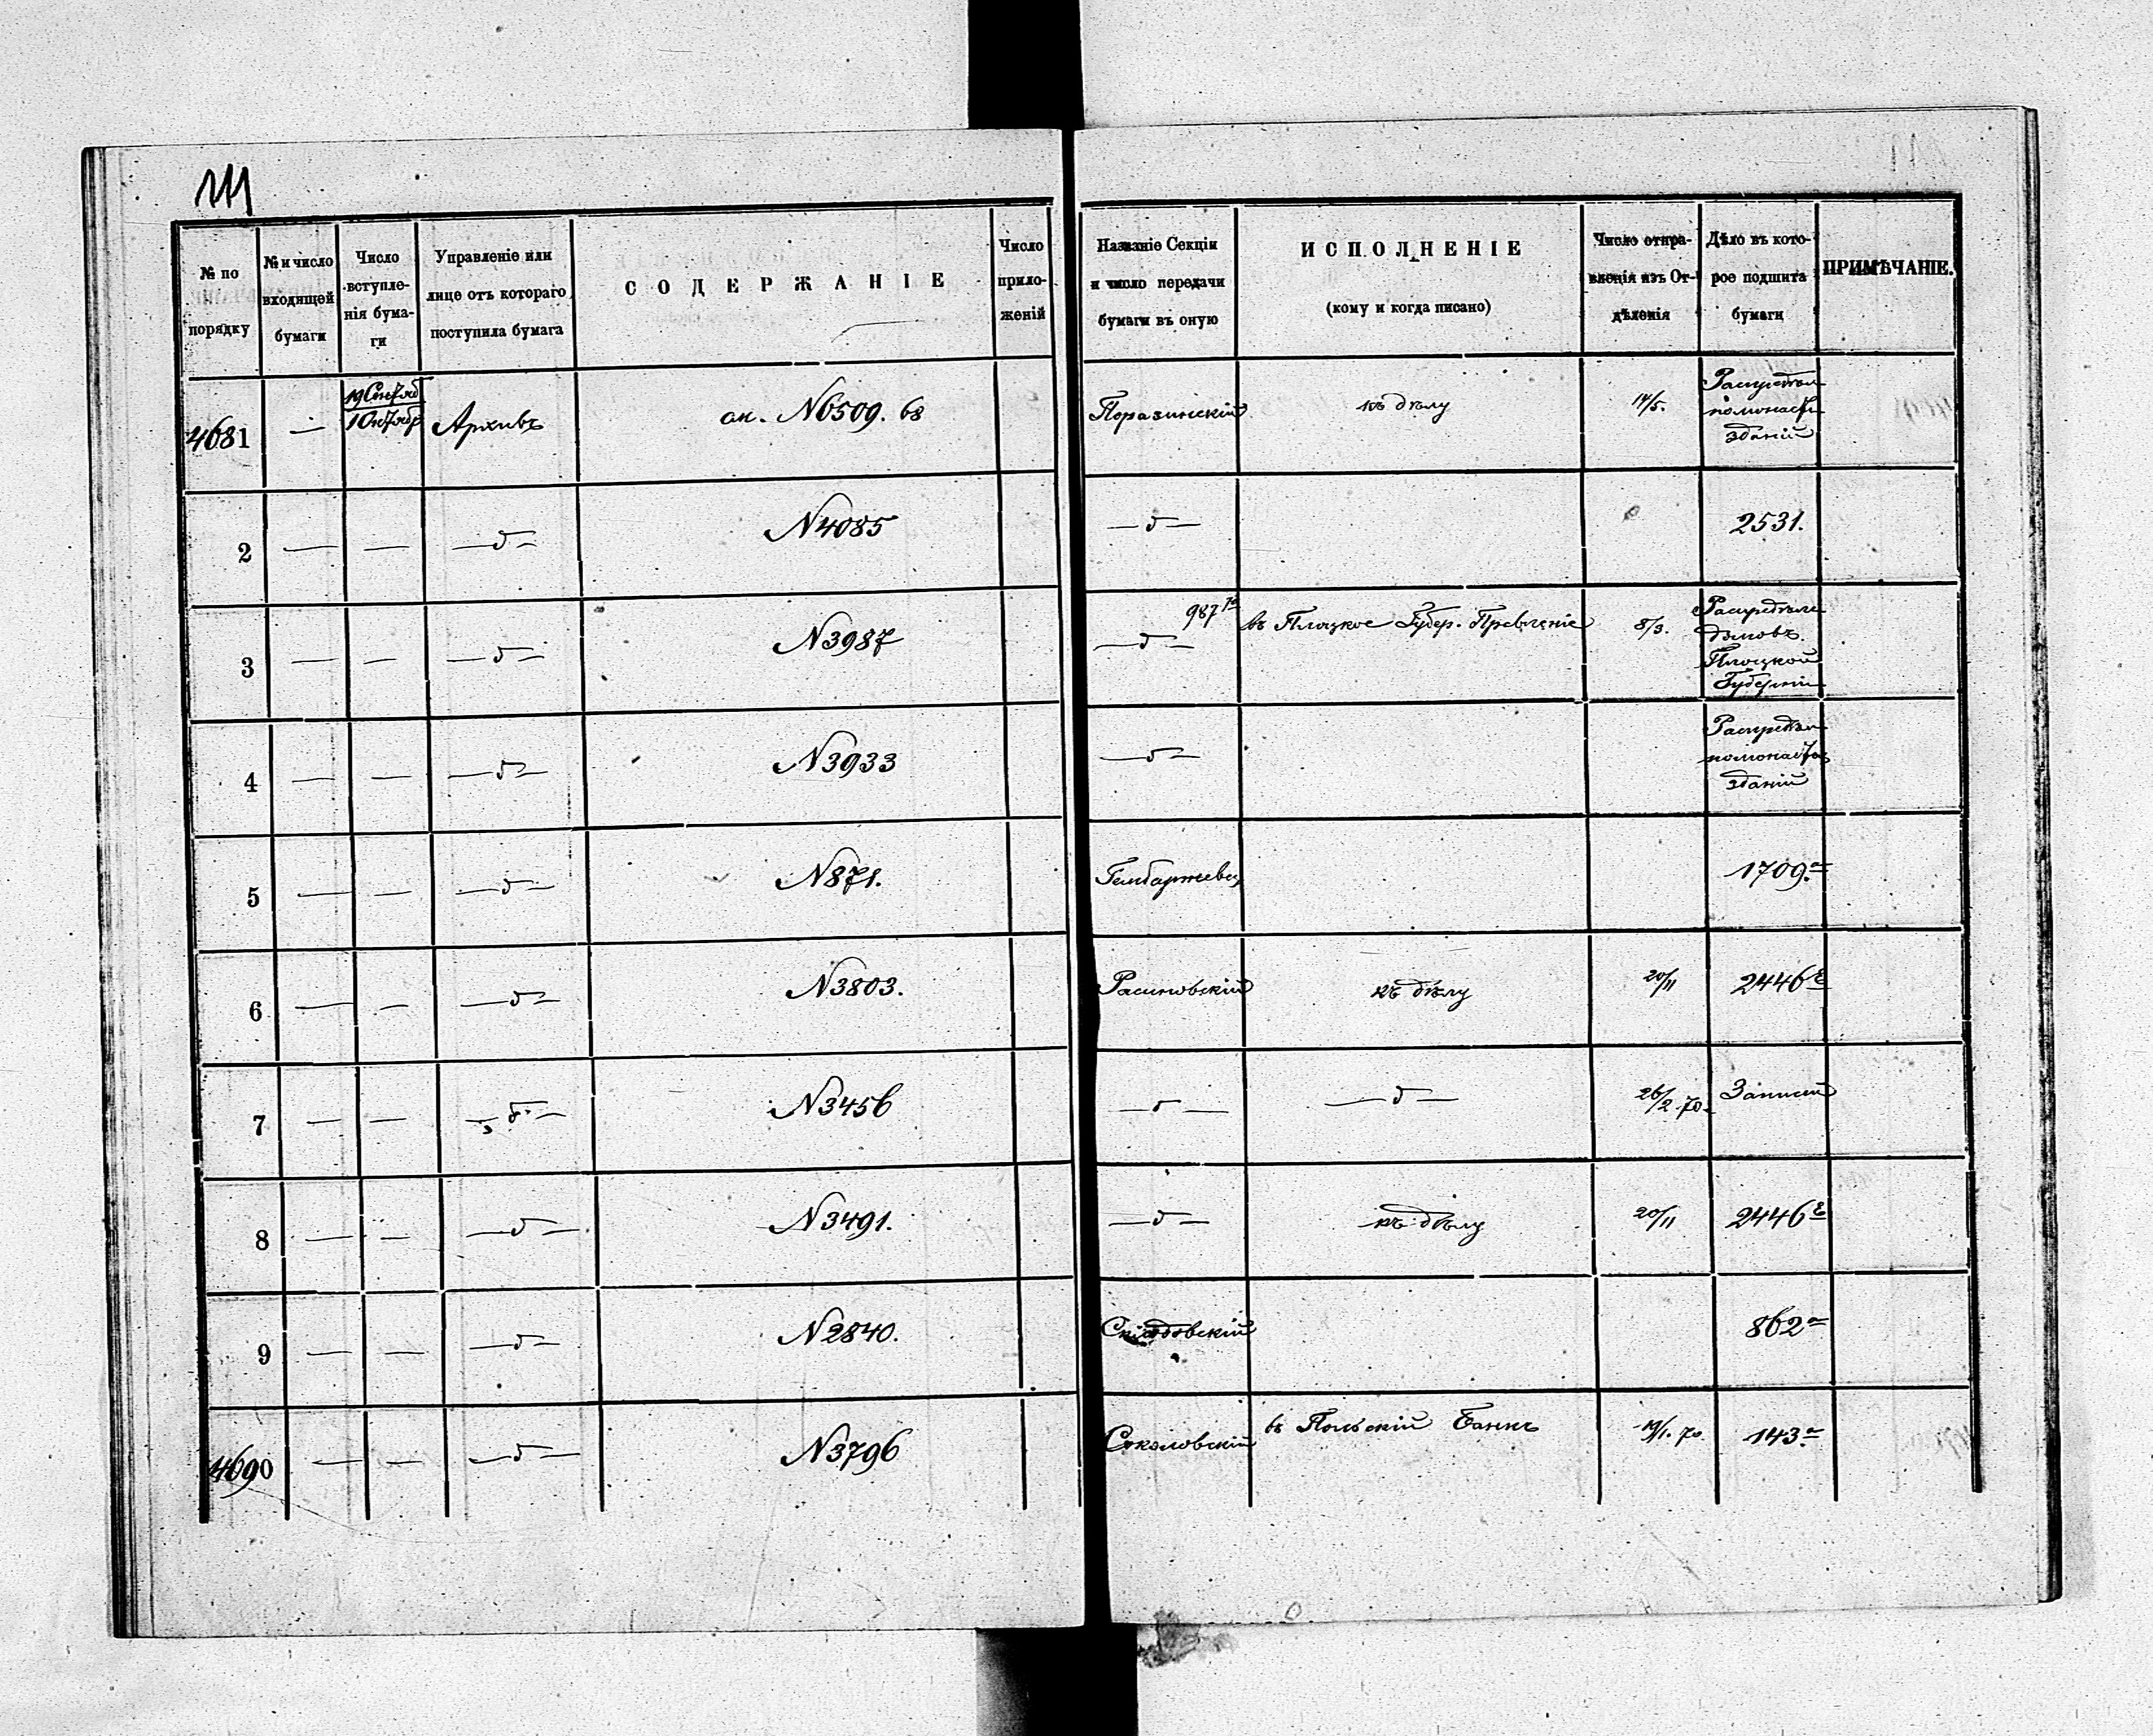 № по порядку
№ и число входящей бумаги
Число вступленія бумаги
Управленіе или лице отъ котораго поступила бумага
СОДЕРЖАНІЕ
Число приложеній
Названіе Секціи и число передачи бумаги въ оную
ИСПОЛНЕНІЕ
(кому и когда писано)
Число отправленія изъ Отдѣленія
Дѣло въ которое подшита бумаги
ПРИМѢЧАНІЕ.
4681 — 19 Сентяб / 1 Октябр Архивъ ак. N6509. 68 Поразинскій къ дѣлу 14/5. Распредѣл помонаст зданій
2 — — —д— N4085 —д— 2531.
3 — — —д— N3987 —д— 987 въ Плоцкое Губер. Правленіе 8/3. Распредѣл домовъ Плоцкой Губерніи
4 — — —д— N3933 —д— Распредѣл помонаст зданій
5 — — —д— N871. 1709 а
6 — — —д— N3803. Расиновскій къ дѣлу 20/11 2446
7 — — —д— N3456 —д— —д— 26/2 70. Записей
8 — — —д— N3491. —д— къ дѣлу 20/11 2446
9 — — —д— N2840. 862 а
4690 — — —д— N3796 Соколовскій въ Польскій Банкъ 19/1. 70. 143 а